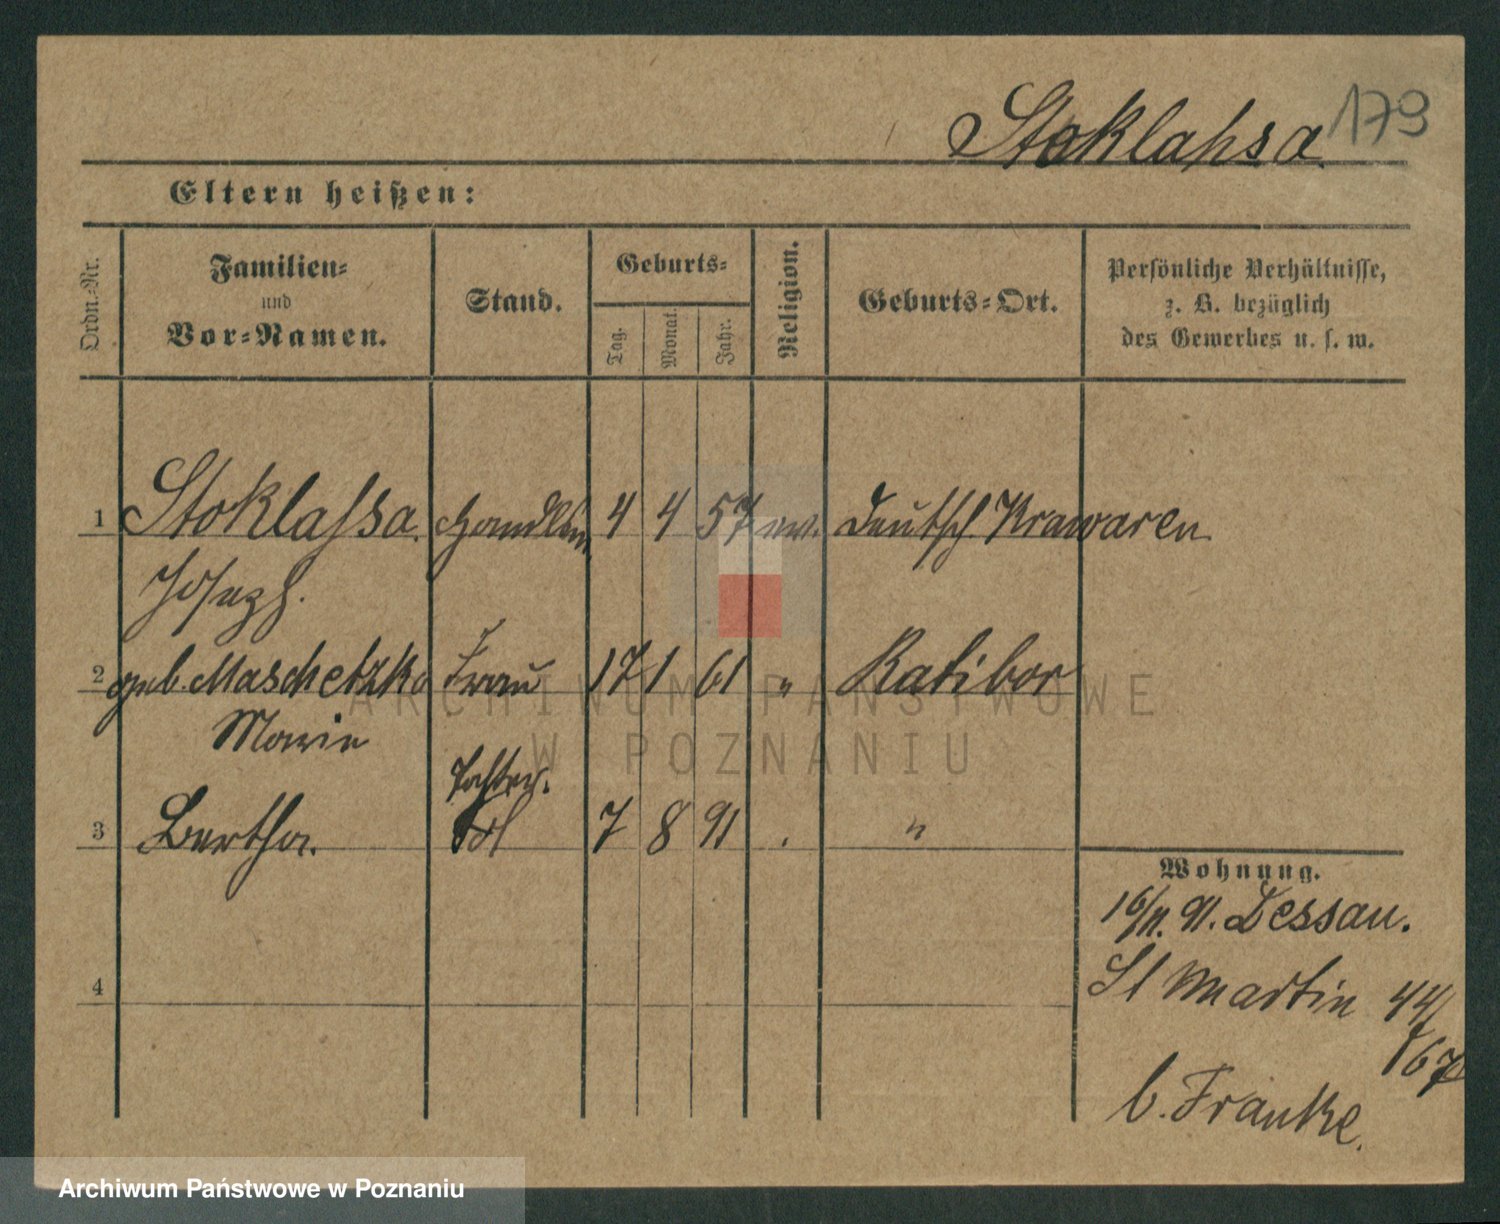 Stoklaßsa 179
Eltern heißen:
Ordn.-Nr.
Familien-
und
Vor-Namen.
Stand.
Geburts-
Tag.
Monat.
Jahr.
Religion.
Geburts-Ort.
Persönliche Verhältnisse,
z. B. bezüglich
des Gewerbes u. s. w.
1 Stoklaßsa Handlu 4 4 57 ev. Deutsch Krawaren
Joseph.
2 geb. Maschetzko Frau 17 1 61 " Ratibor
Marie
Tochter.
3 Bertha. 7 8 91 . "
Wohnung.
16/11. 91. Dessau.
4
St Martin 44/
67
b. Franke.
ARCHIWUM PAŃSTWOWE
W POZNANIU
Archiwum Państwowe w Poznaniu